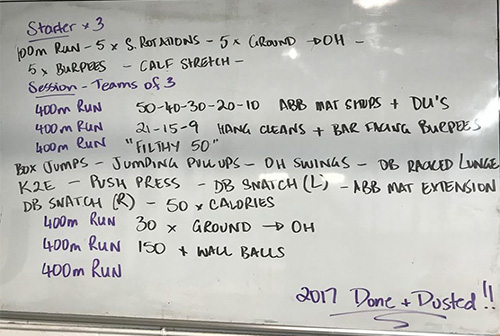 Starter x 3
100m RUN - 5 x S. ROTATIONS - 5 x GROUND → OH -
5 x BURPEES - CALF STRETCH -
Session - Teams of 3
400m RUN 50-40-30-20-10 ABB MAT SITUPS + DU'S
400m RUN 21-15-9 HANG CLEANS + BAR FACING BURPEES
400m RUN "FILTHY 50"
BOX JUMPS - JUMPING PULLUPS - OH SWINGS - DB RACKED LUNGE
K2E - PUSH PRESS - DB SNATCH (L) - ABB MAT EXTENSION
DB SNATCH (R) - 50 x CALORIES
400m RUN 30 x GROUND → OH
400m RUN 150 x WALL BALLS
400m RUN
2017 Done + Dusted!!